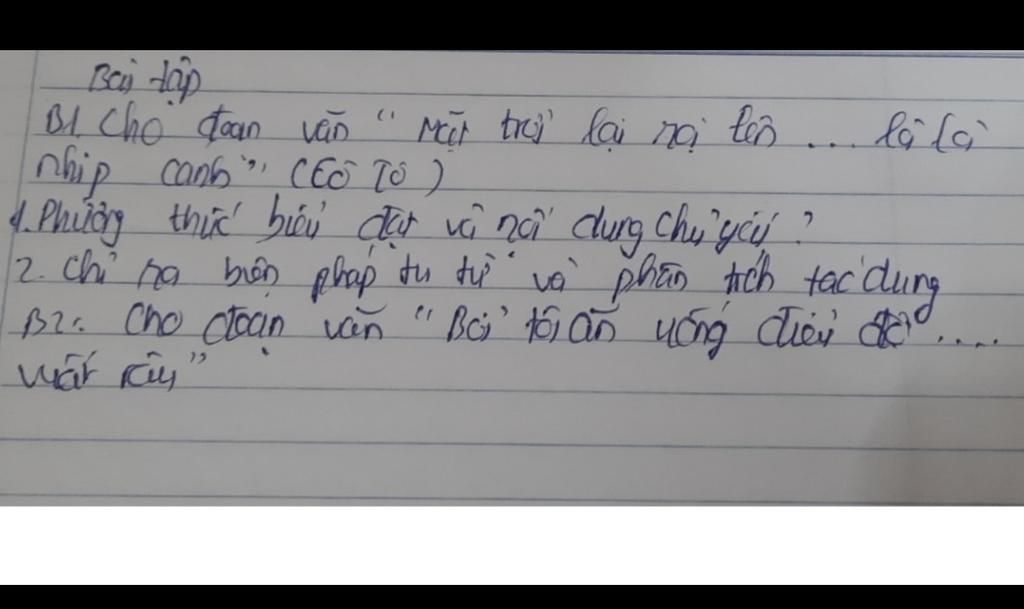 Bài tập
B1. Cho đoạn văn "Mặt trời lại rọi lên ... là là
nhịp cánh" (Cô Tô)
1. Phương thức biểu đạt và nội dung chủ yếu?
2. Chỉ ra biện pháp tu từ và phân tích tác dụng
B2: Cho đoạn văn "Bởi tôi ăn uống điều độ ....
vuốt râu"